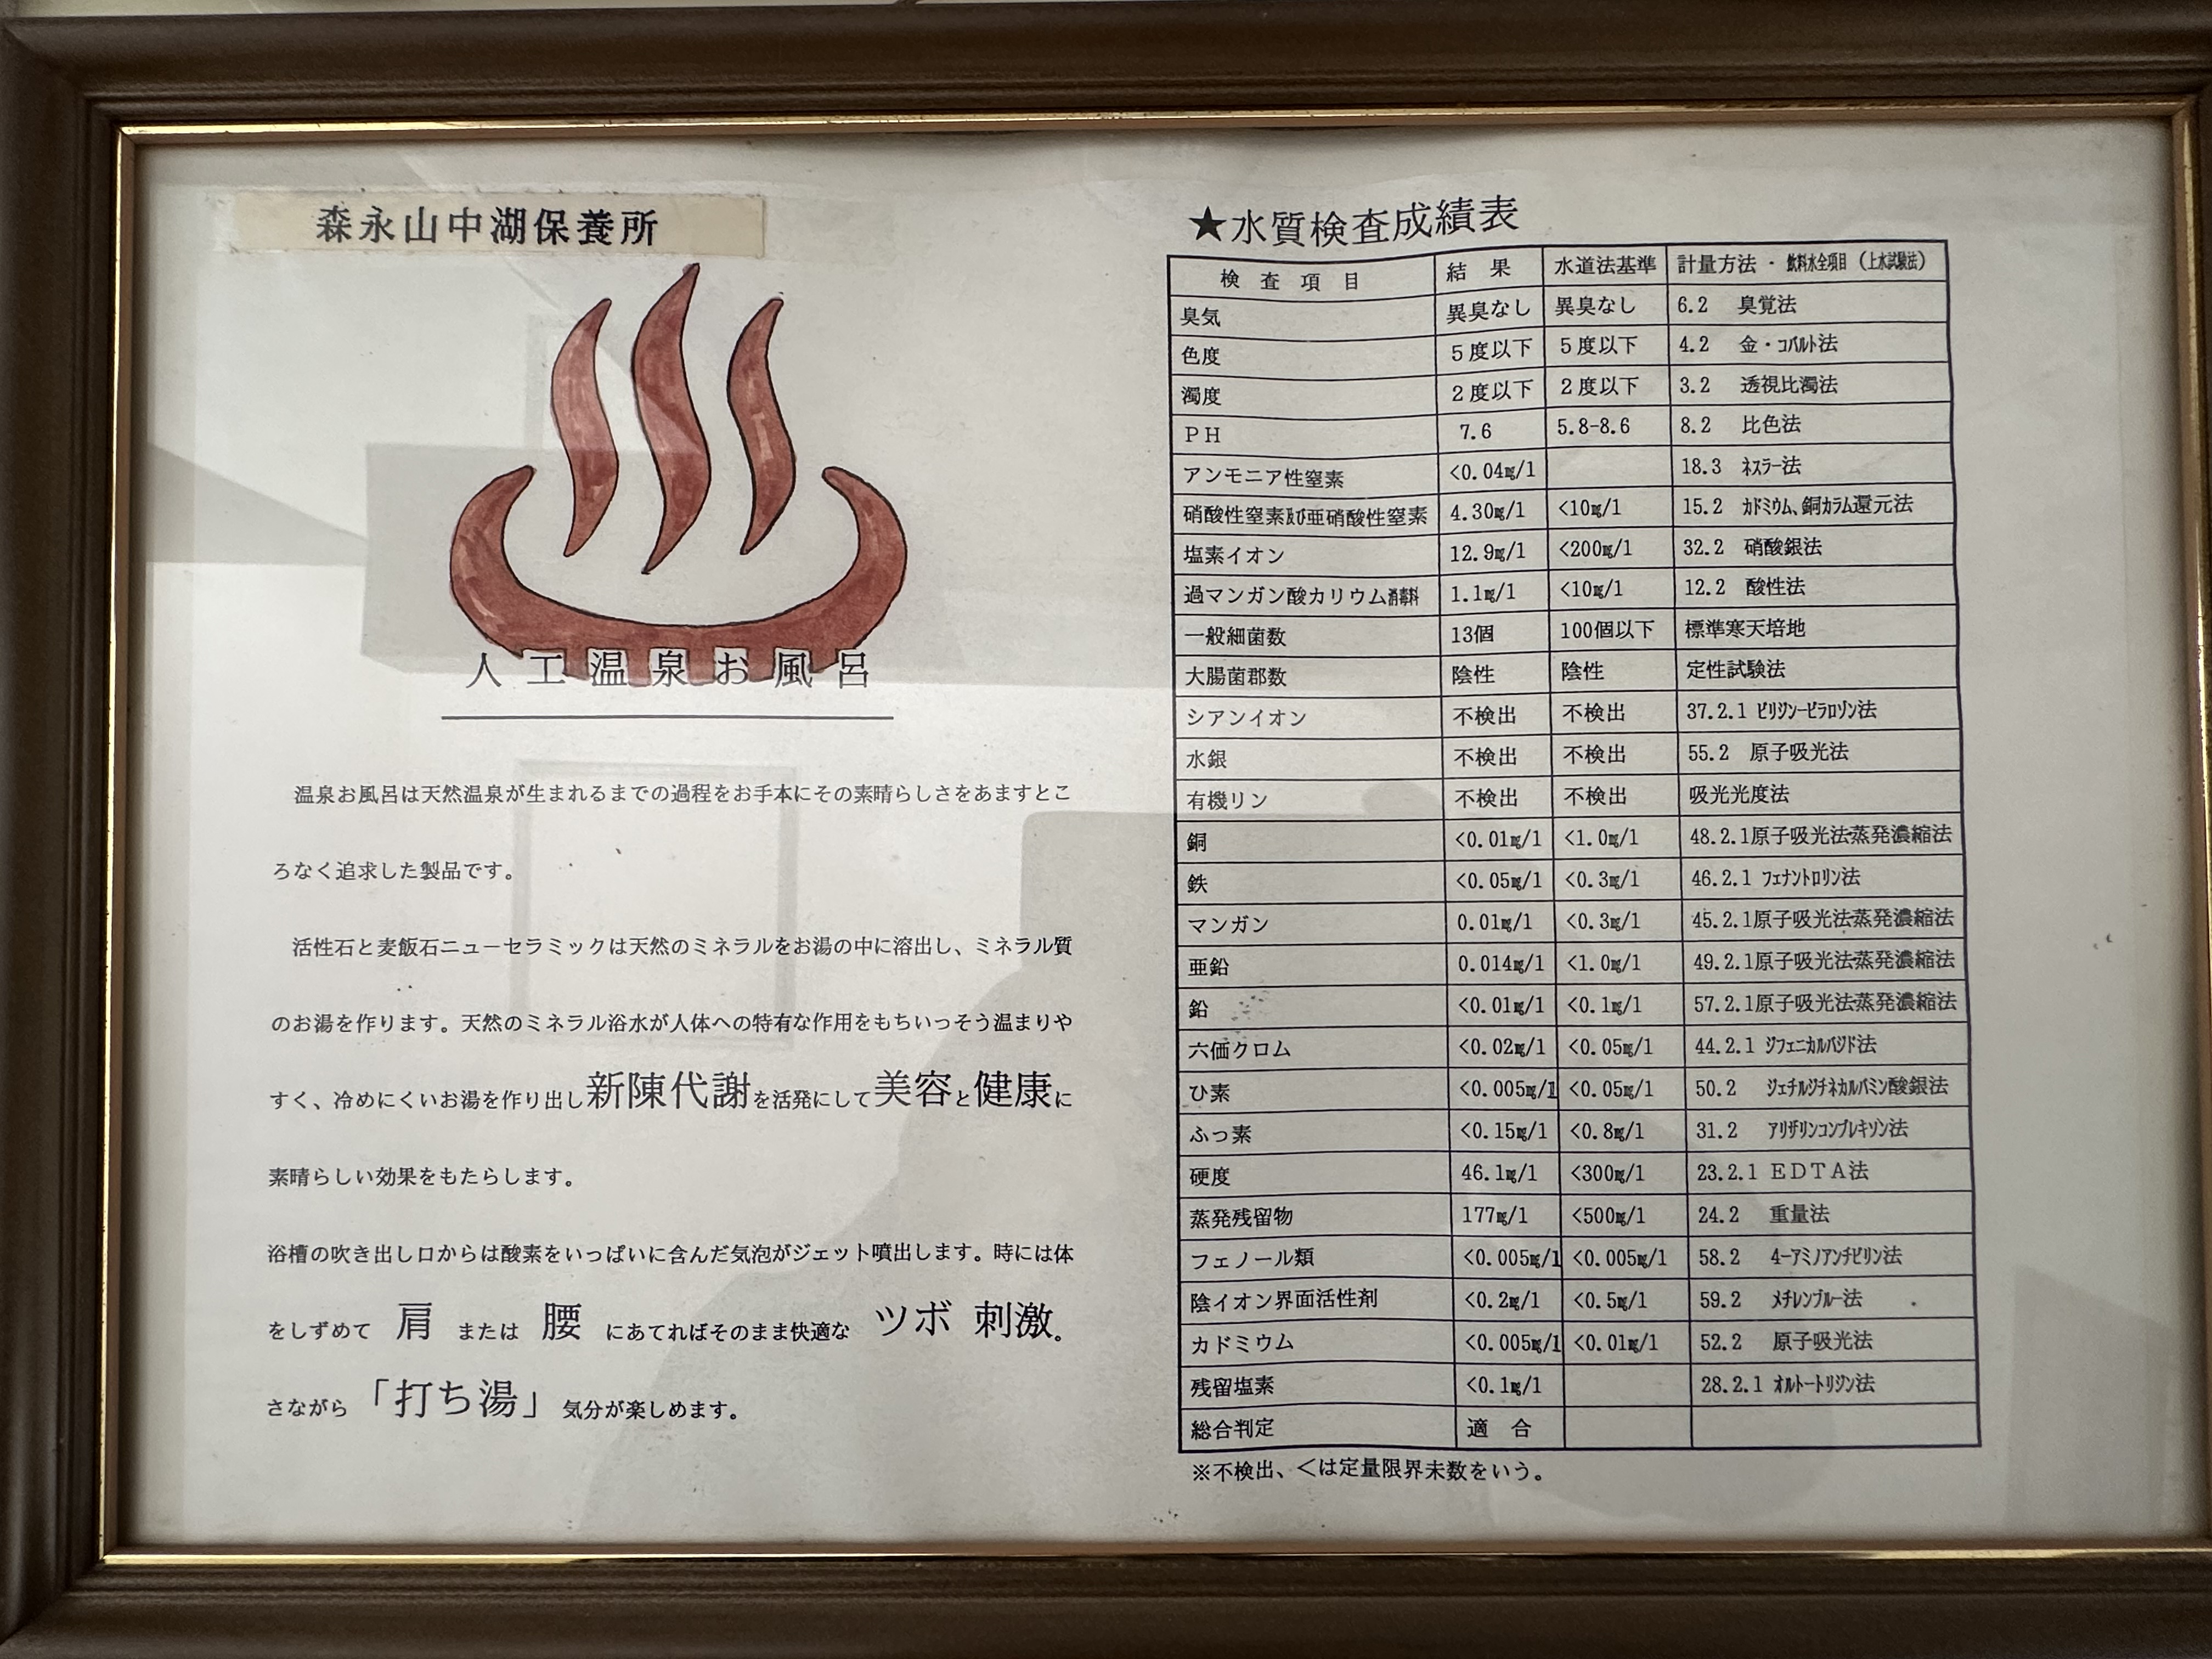 森永山中湖保養所
人工温泉お風呂
温泉お風呂は天然温泉が生まれるまでの過程をお手本にその素晴らしさをあますとこ
ろなく追求した製品です。
活性石と麦飯石ニューセラミックは天然のミネラルをお湯の中に溶出し、ミネラル質
のお湯を作ります。天然のミネラル浴水が人体への特有な作用をもちいっそう温まりや
すく、冷めにくいお湯を作り出し新陳代謝を活発にして美容と健康に
素晴らしい効果をもたらします。
浴槽の吹き出し口からは酸素をいっぱいに含んだ気泡がジェット噴出します。時には体
をしずめて 肩 または 腰 にあてればそのまま快適な ツボ 刺激。
さながら「打ち湯」気分が楽しめます。
★水質検査成績表
検査項目 結果 水道法基準 計量方法・飲料水全項目（上水試験法）
臭気 異臭なし 異臭なし 6.2 臭覚法
色度 5度以下 5度以下 4.2 金・コバルト法
濁度 2度以下 2度以下 3.2 透視比濁法
PH 7.6 5.8-8.6 8.2 比色法
アンモニア性窒素 <0.04㎎/1 18.3 ネスラー法
硝酸性窒素及び亜硝酸性窒素 4.30㎎/1 <10㎎/1 15.2 カドミウム、銅カラム還元法
塩素イオン 12.9㎎/1 <200㎎/1 32.2 硝酸銀法
過マンガン酸カリウム消毒料 1.1㎎/1 <10㎎/1 12.2 酸性法
一般細菌数 13個 100個以下 標準寒天培地
大腸菌郡数 陰性 陰性 定性試験法
シアンイオン 不検出 不検出 37.2.1 ピリジン-ピラロゾン法
水銀 不検出 不検出 55.2 原子吸光法
有機リン 不検出 不検出 吸光光度法
銅 <0.01㎎/1 <1.0㎎/1 48.2.1原子吸光法蒸発濃縮法
鉄 <0.05㎎/1 <0.3㎎/1 46.2.1 フェナントロリン法
マンガン 0.01㎎/1 <0.3㎎/1 45.2.1原子吸光法蒸発濃縮法
亜鉛 0.014㎎/1 <1.0㎎/1 49.2.1原子吸光法蒸発濃縮法
鉛 <0.01㎎/1 <0.1㎎/1 57.2.1原子吸光法蒸発濃縮法
六価クロム <0.02㎎/1 <0.05㎎/1 44.2.1 ジフェニカルバジド法
ひ素 <0.005㎎/1 <0.05㎎/1 50.2 ジェチルジチネカルバミン酸銀法
ふっ素 <0.15㎎/1 <0.8㎎/1 31.2 アリザリンコンプレキソン法
硬度 46.1㎎/1 <300㎎/1 23.2.1 EDTA法
蒸発残留物 177㎎/1 <500㎎/1 24.2 重量法
フェノール類 <0.005㎎/1 <0.005㎎/1 58.2 4-アミノアンチピリン法
陰イオン界面活性剤 <0.2㎎/1 <0.5㎎/1 59.2 メチレンブルー法
カドミウム <0.005㎎/1 <0.01㎎/1 52.2 原子吸光法
残留塩素 <0.1㎎/1 28.2.1 オルトートリジン法
総合判定 適合
※不検出、＜は定量限界未数をいう。